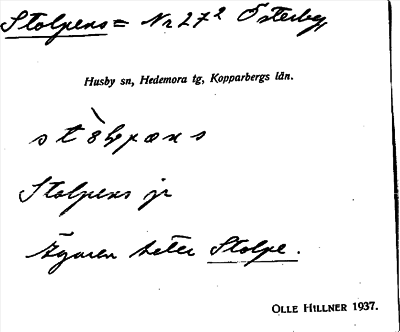 Stolpens = Nr 27² Österby
Husby sn, Hedemora tg, Kopparbergs län.
Stolpens jr
Ägaren heter Stolpe.
OLLE HILLNER 1937.